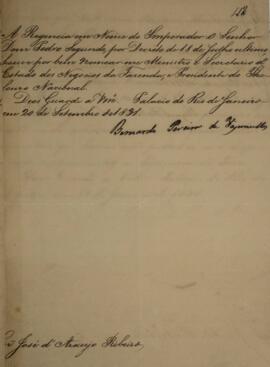 156
A Regencia em Nome do Imperador o Senhor
Dom Pedro Segundo, por Decreto de 18 de Julho ultimo
houve por bem nomear-me Ministro e Secretario d'
Estado dos Negocios da Fazenda, e Presidente do The-
souro Nacional.
Deos Guarde a Vm. Palacio do Rio de Janeiro
em 20 de Setembro de 1831.
Bernardo Pereira de Vasconcellos
José d'Araujo Ribeiro